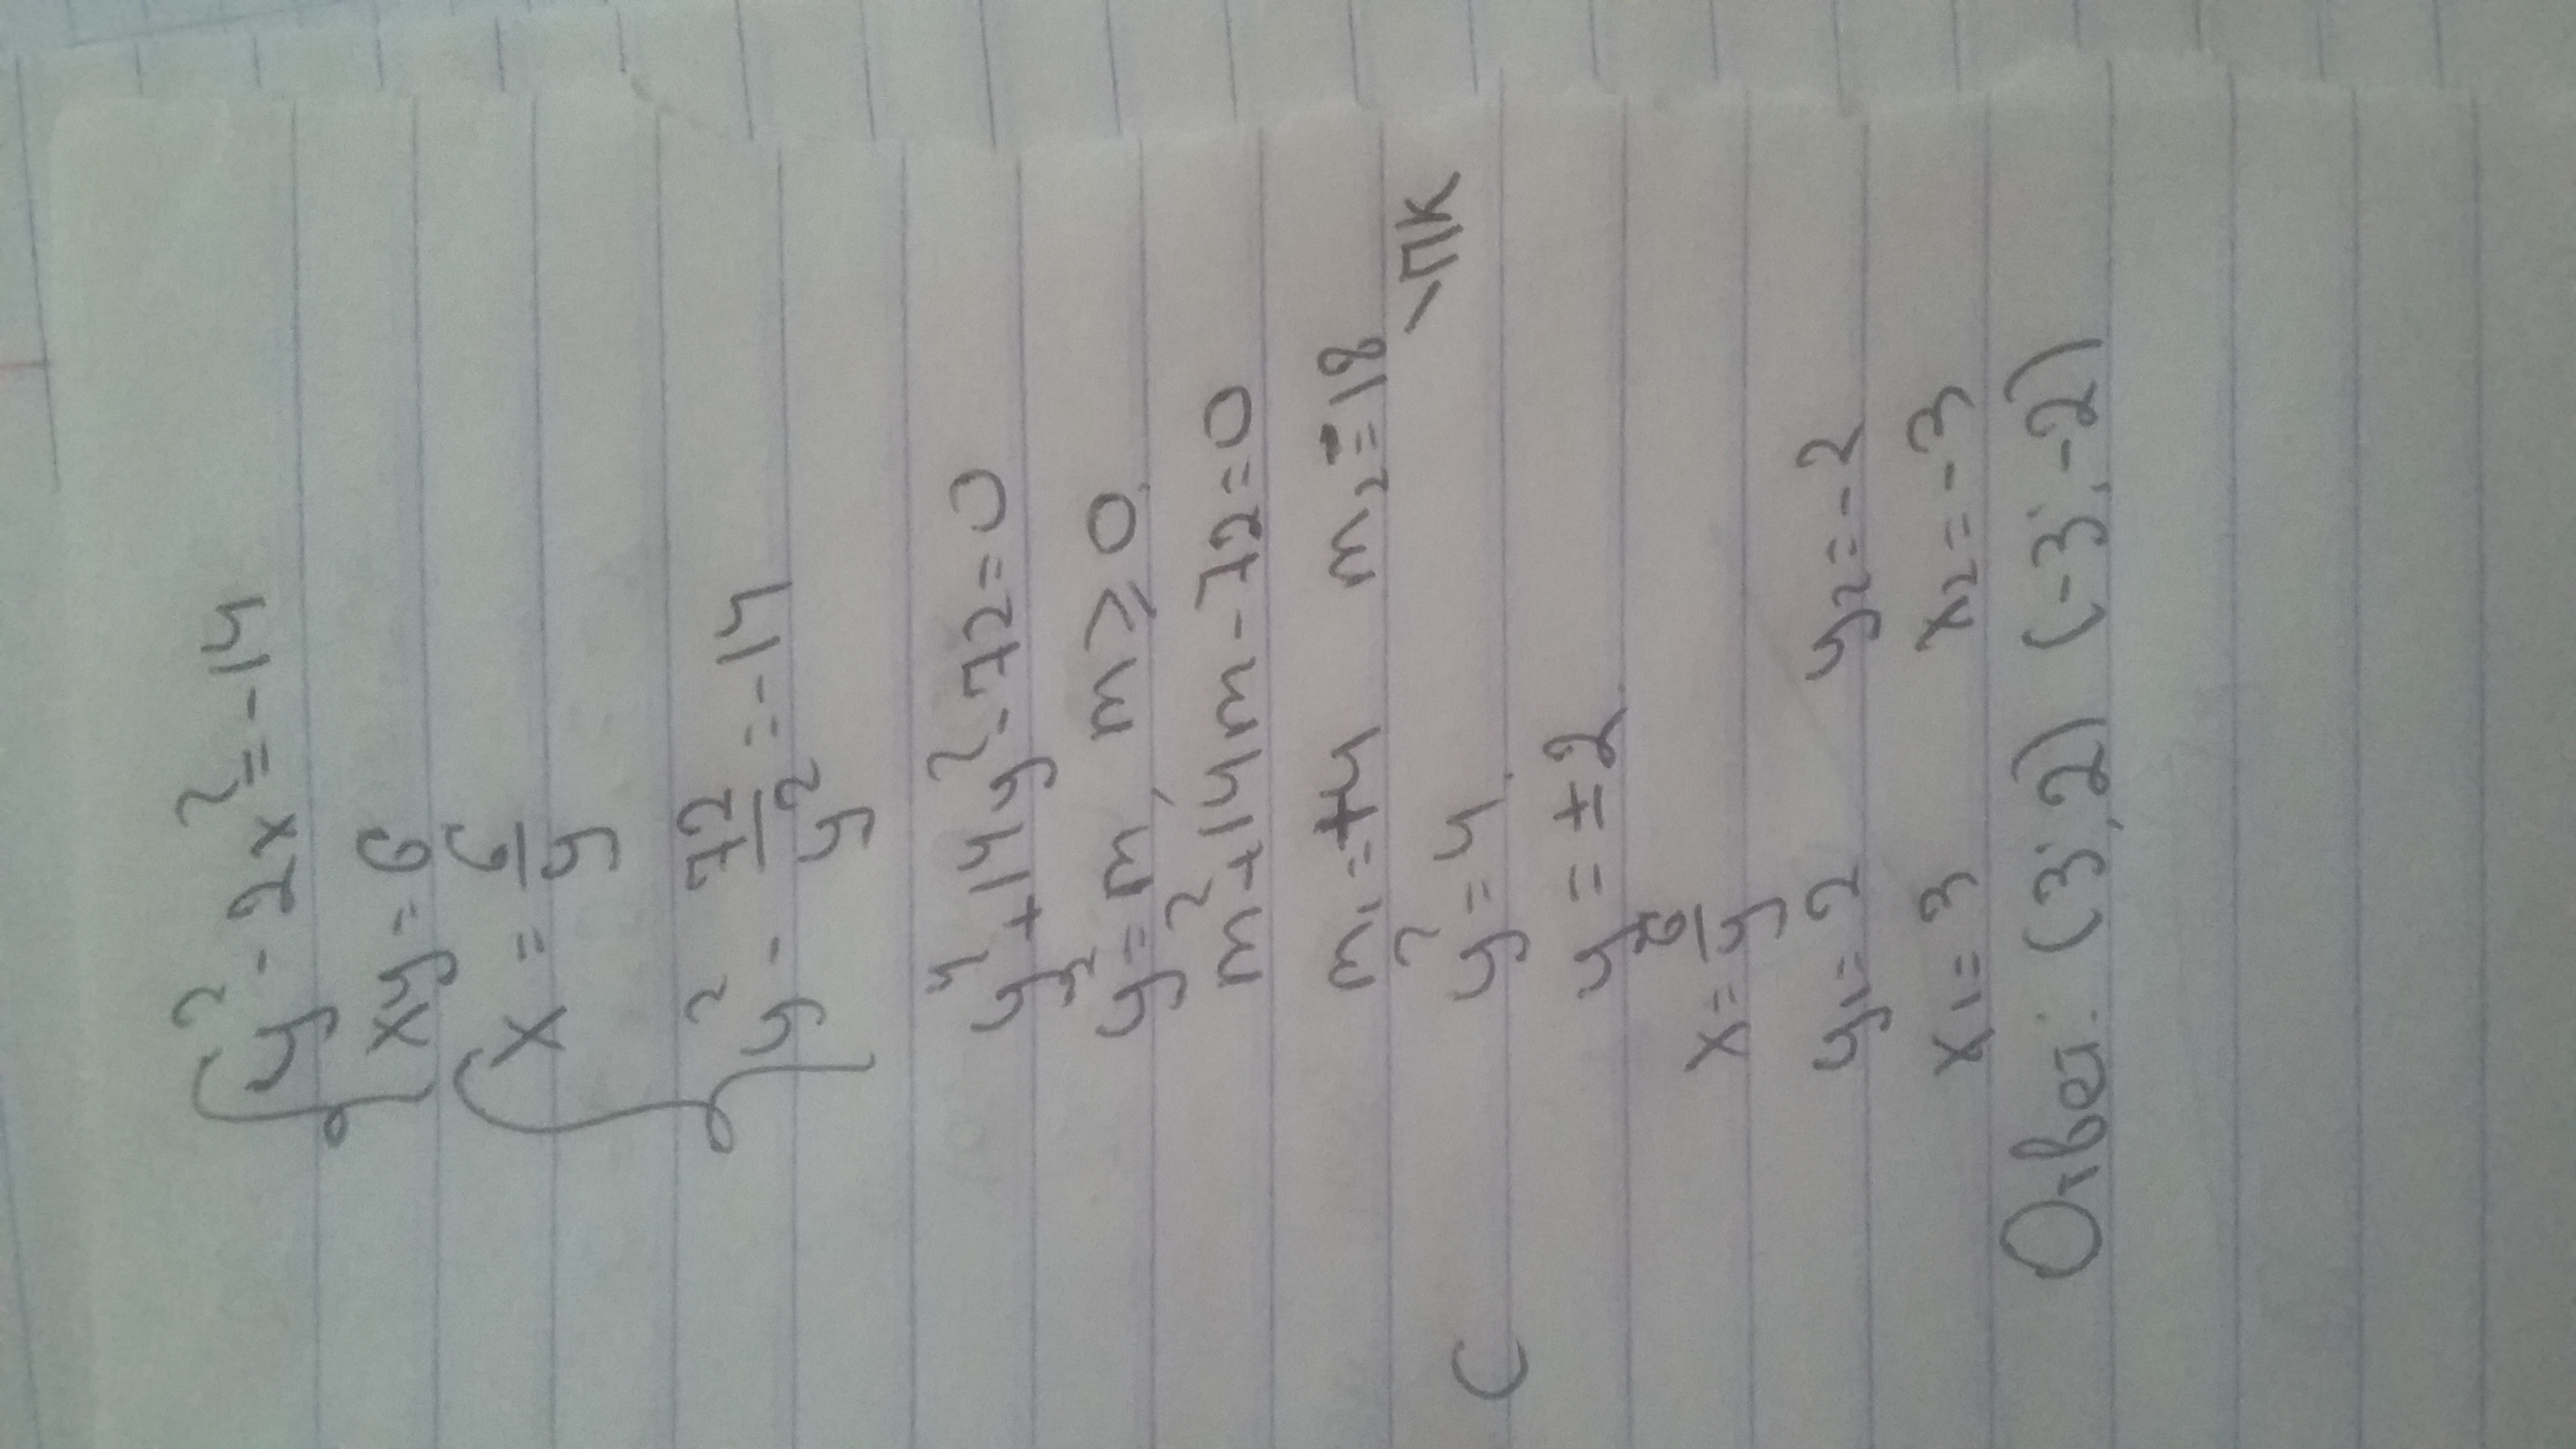 y² - 2x² = -14
xy = 6
x = 6/y
y² - 72/y² = -14
y⁴ + 14y² - 72 = 0
y² = m, m ≥ 0
m² + 14m - 72 = 0
m₁ = +4 m₂ = -18 - ПК
y² = 4
y = ±2
x = 6/y
y₁ = 2 y₂ = -2
x₁ = 3 x₂ = -3
Ответ: (3; 2) (-3; -2)